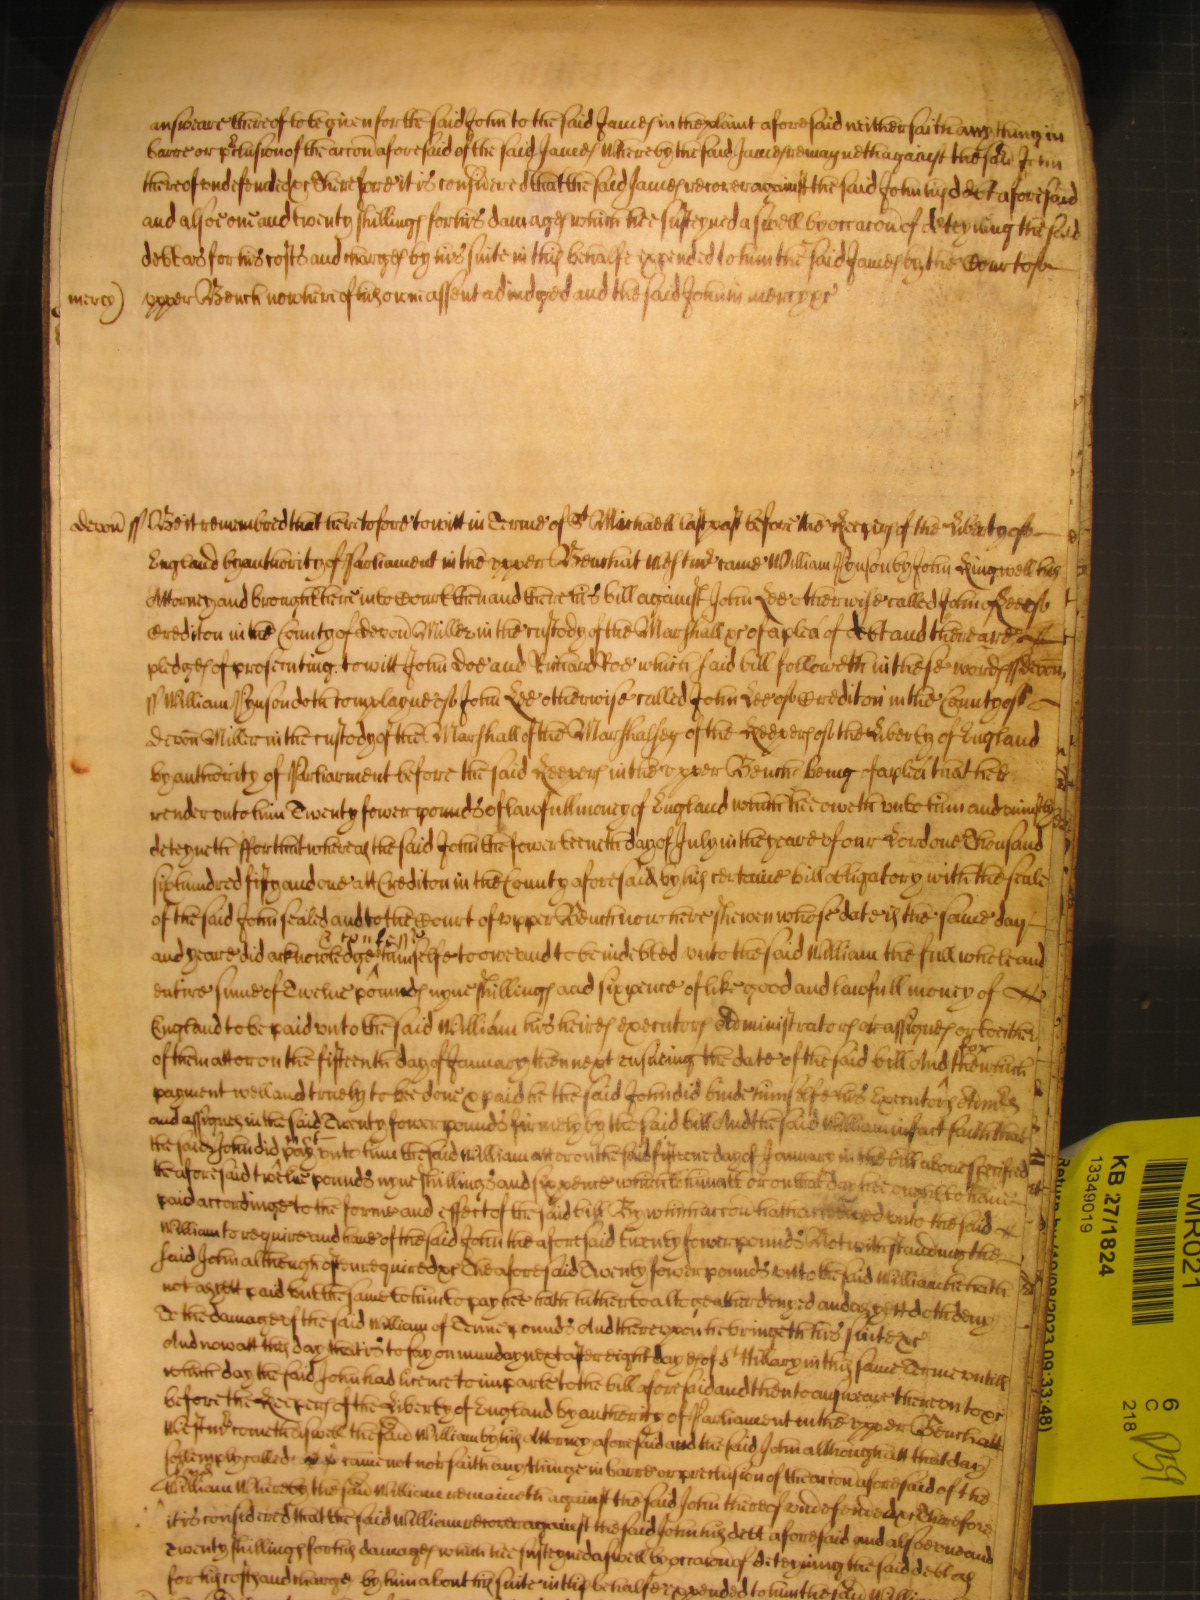 answeare thereof to be given for the said John to the said James in the plaint aforesaid neither saith any thing in
barre or p'clusion of the accon aforesaid of the said James Whereby the said James remayneth against the said John
thereof undefended &c Therefore it is considered that the said James recover against the said John his debt aforesaid
and alsoe one and twenty shillings for his damages which hee susteyned aswell by occacon of deteyning the said
debt as for his costs and charges by his suite in this behalfe expended to him the said James by the Court of
mercy) upper Bench now here of his owne assent adiudged and the said John in mercy &c
devon ss Be it remembred that heretofore to witt in Terme of St Michaell last past before the Keepers of the Liberty of
England by authority of Parliament in the upper Bench at Westmr came William Pynson by John Ringwell his
Attorney and brought here into Court then and there his bill against John Lee otherwise called John Lee of
Crediton in the County of Devon Miller in the custody of the Marshall &c of a plea of debt and there are
pledges of prosecuting to witt John Doe and Richard Roe which said bill followeth in these words ss devon
ss William Pynson doth complayne of John Lee otherwise called John Lee of Crediton in the County of
Devon Miller in the custody of the Marshall of the Marshalsey of the Keepers of the Liberty of England
by authority of Parliament before the said Keepers in the upper Bench being of a plea that hee
render unto him Twenty fower pounds of lawfull money of England which hee oweth unto him and uniustly
deteyneth ffor that whereas the said John the fowerteenth day of July in the yeare of our Lord one Thousand
six hundred fifty and one att Crediton in the County aforesaid by his certaine bill obligatory with the seale
of the said John sealed and to the Court of upper Bench now here shewen whose date is the same day
and yeare did acknowledge & confesse himselfe to owe and to be indebted unto the said William the full whole and
entire sume of Twelve pounds nyne shillings and sixpence of like good and lawfull money of
England to be paid unto the said William his heires executors Administrators or assignes or to either
of them att or on the fifteenth day of January then next ensueing the date of the said bill And for the which
payment well and truely to bee done & paid he the said John did binde himselfe his Executors Admrs
and assignes in the said Twenty fower pounds firmely by the said bill And the said William in fact saith that
the said John did not pay unto him the said William att or on the said fifteene day of January in the bill above specified
the aforesaid twelve pounds nyne shillings and sixpence which to him att or on that day hee ought to have
paid accordinge to the forme and effect of the said bill By which accon hath accrued unto the said
William to require and have of the said John the aforesaid twenty fower pounds Notwithstanding the
said John although often required &c The aforesaid Twenty fower pounds unto the said William he hath
not as yett paid but the same to him to pay hee hath hitherto altogeather denyed and as yett doth deny
To the damage of the said William of Tenne pounds And thereupon he bringeth his suite &c
And now att this day that is to say on munday next after eight dayes of St Hillary in this same Terme untill
which day the said John had licence to imparle to the bill aforesaid and then to answeare thereunto &c
before the Keepers of the Liberty of England by authority of Parliament in the upper Bench att
Westmr cometh aswell the said William by his Attorney aforesaid and the said John although att that day
solemply called came not nor saith any thinge in barre or preclusion of the accon aforesaid of the
said William Whereby the said William remaineth against the said John thereof undefended &c Therefore
it is considered that the said William recover against the said John his debt aforesaid and alsoe one and
twenty shillings for his damages which hee susteyned aswell by occasion of deteyning the said debt as
for his costs and charges by him about his suite in this behalfe expended to him the said William
MR021
KB 27/1824
13349019
6
C
218